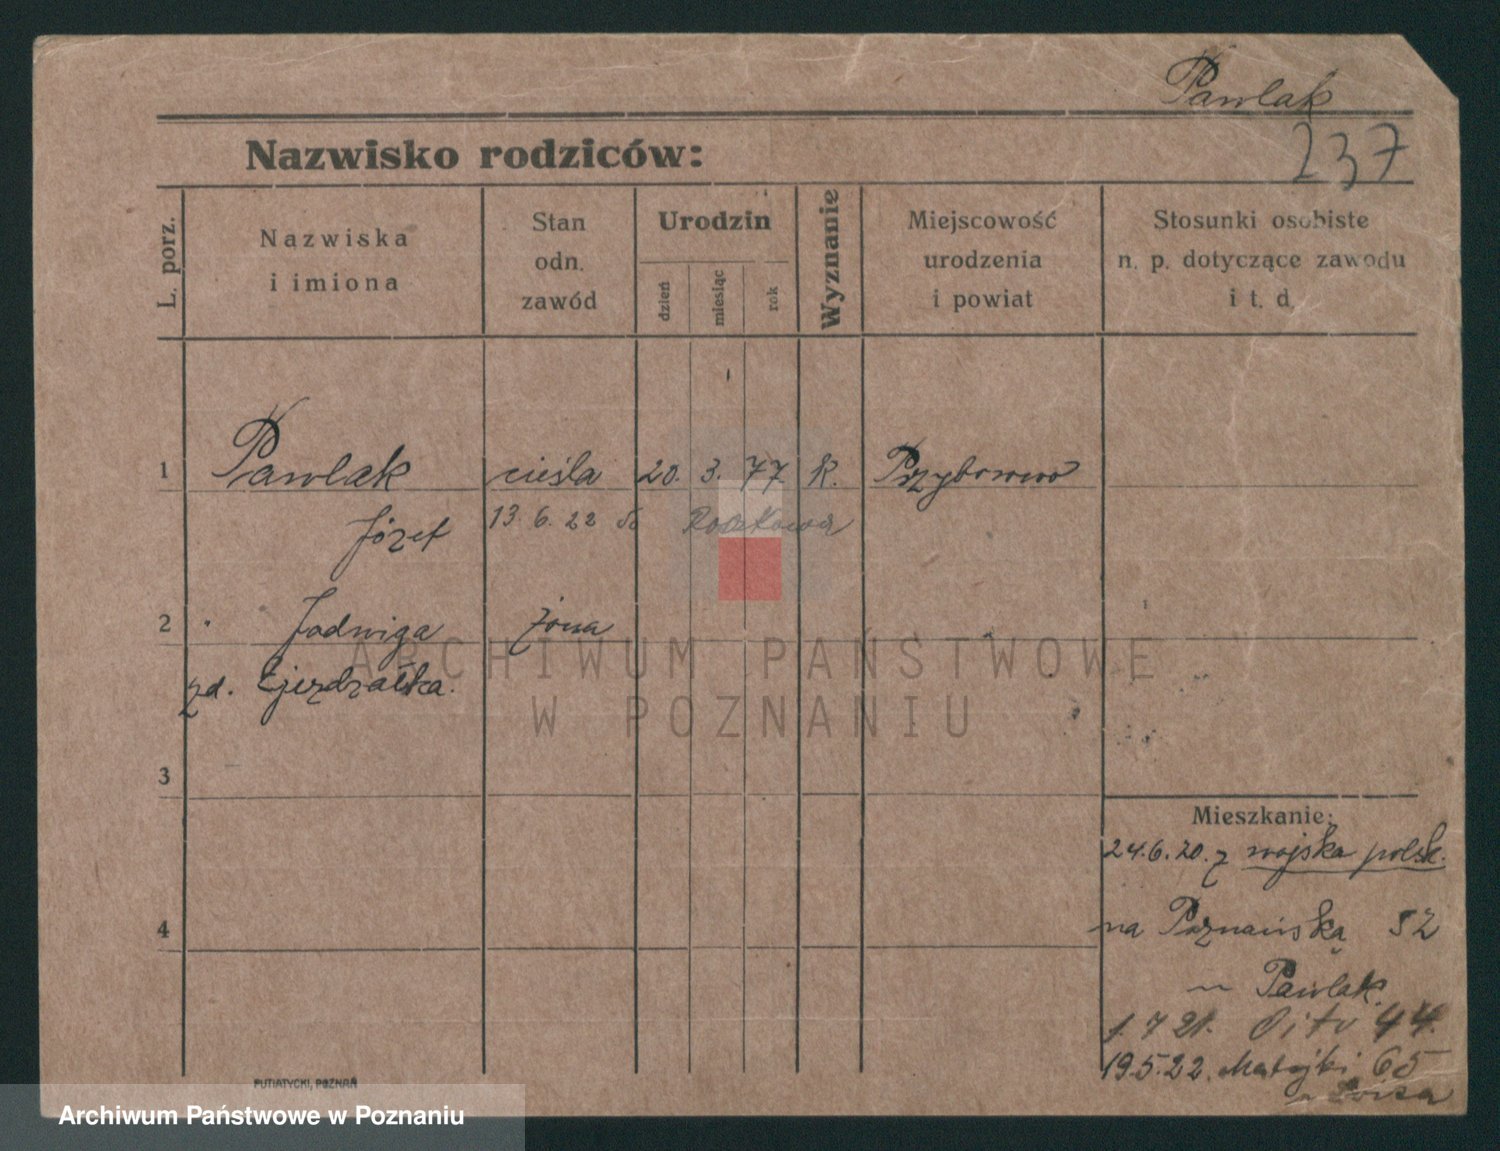 Pawlak
237
Nazwisko rodziców:
L. porz.
Nazwiska
i imiona
Stan
odn.
zawód
Urodzin
dzień
miesiąc
rok
Wyznanie
Miejscowość
urodzenia
i powiat
Stosunki osobiste
n. p. dotyczące zawodu
i t. d.
1 Pawlak cieśla 20. 3. 77. k. Przyborowo
Józef 13. 6. 22
2 " Jadwiga żona
zd.
3
4
Mieszkanie:
24.6.20. z wojska polsk.
na Poznańską 52
Pawlak.
1.7.21. 44.
19.5.22. Matejki 65
PUTIATYCKI, POZNAŃ
ARCHIWUM PAŃSTWOWE
W POZNANIU
Archiwum Państwowe w Poznaniu